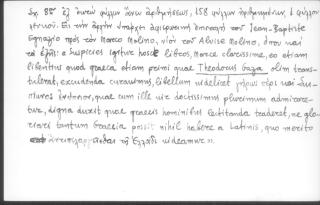 Σχ. 8° ἐξ
φύλλων
ἀριθμήσεως, 158 φύλλων ἠριθμημένων, 1 φύλλον
λευκοῦ. Εἰς τὴν ἀρχὴν ὑπάρχει ἀφιερωτικὴ ἐπιστολὴ τοῦ Jean-Baptiste
Egnazio πρὸς τὸν Marco Molino, υἱὸν τοῦ Alvise Molino, ὅπου καὶ
τὰ ἑξῆς: « hos libros, Marce clarissime, eo etiam
libentius quod graeca etiam primi quae Theodorus Gaza olim trans-
tulerat, excudenda curavimus, libellum videlicet γήρως
quem cum ille vir doctissimus plurimum admirare-
tur, digna duxit quae graecis hominibus lectitanda traderet, ne glo-
riari tantum Graecia possit nihil habere a Latinis, quo merito
τῇ Ἑλλάδι videamur ».